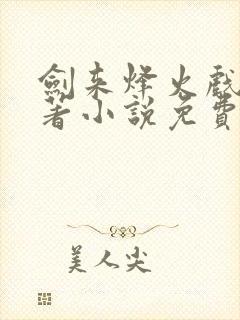 劍来烽火戲
著小說免費
美人尖